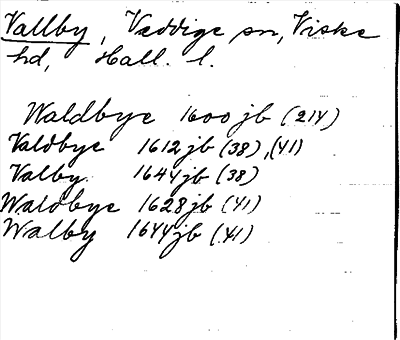 Vallby, Veddige sn, Viske
hd, Hall. l.
Waldbye 1600 jb (214)
Valdbye 1612 jb (38), (41)
Valby 1644 jb (38)
Waldbye 1628 jb (41)
Walby 1644 jb (41)